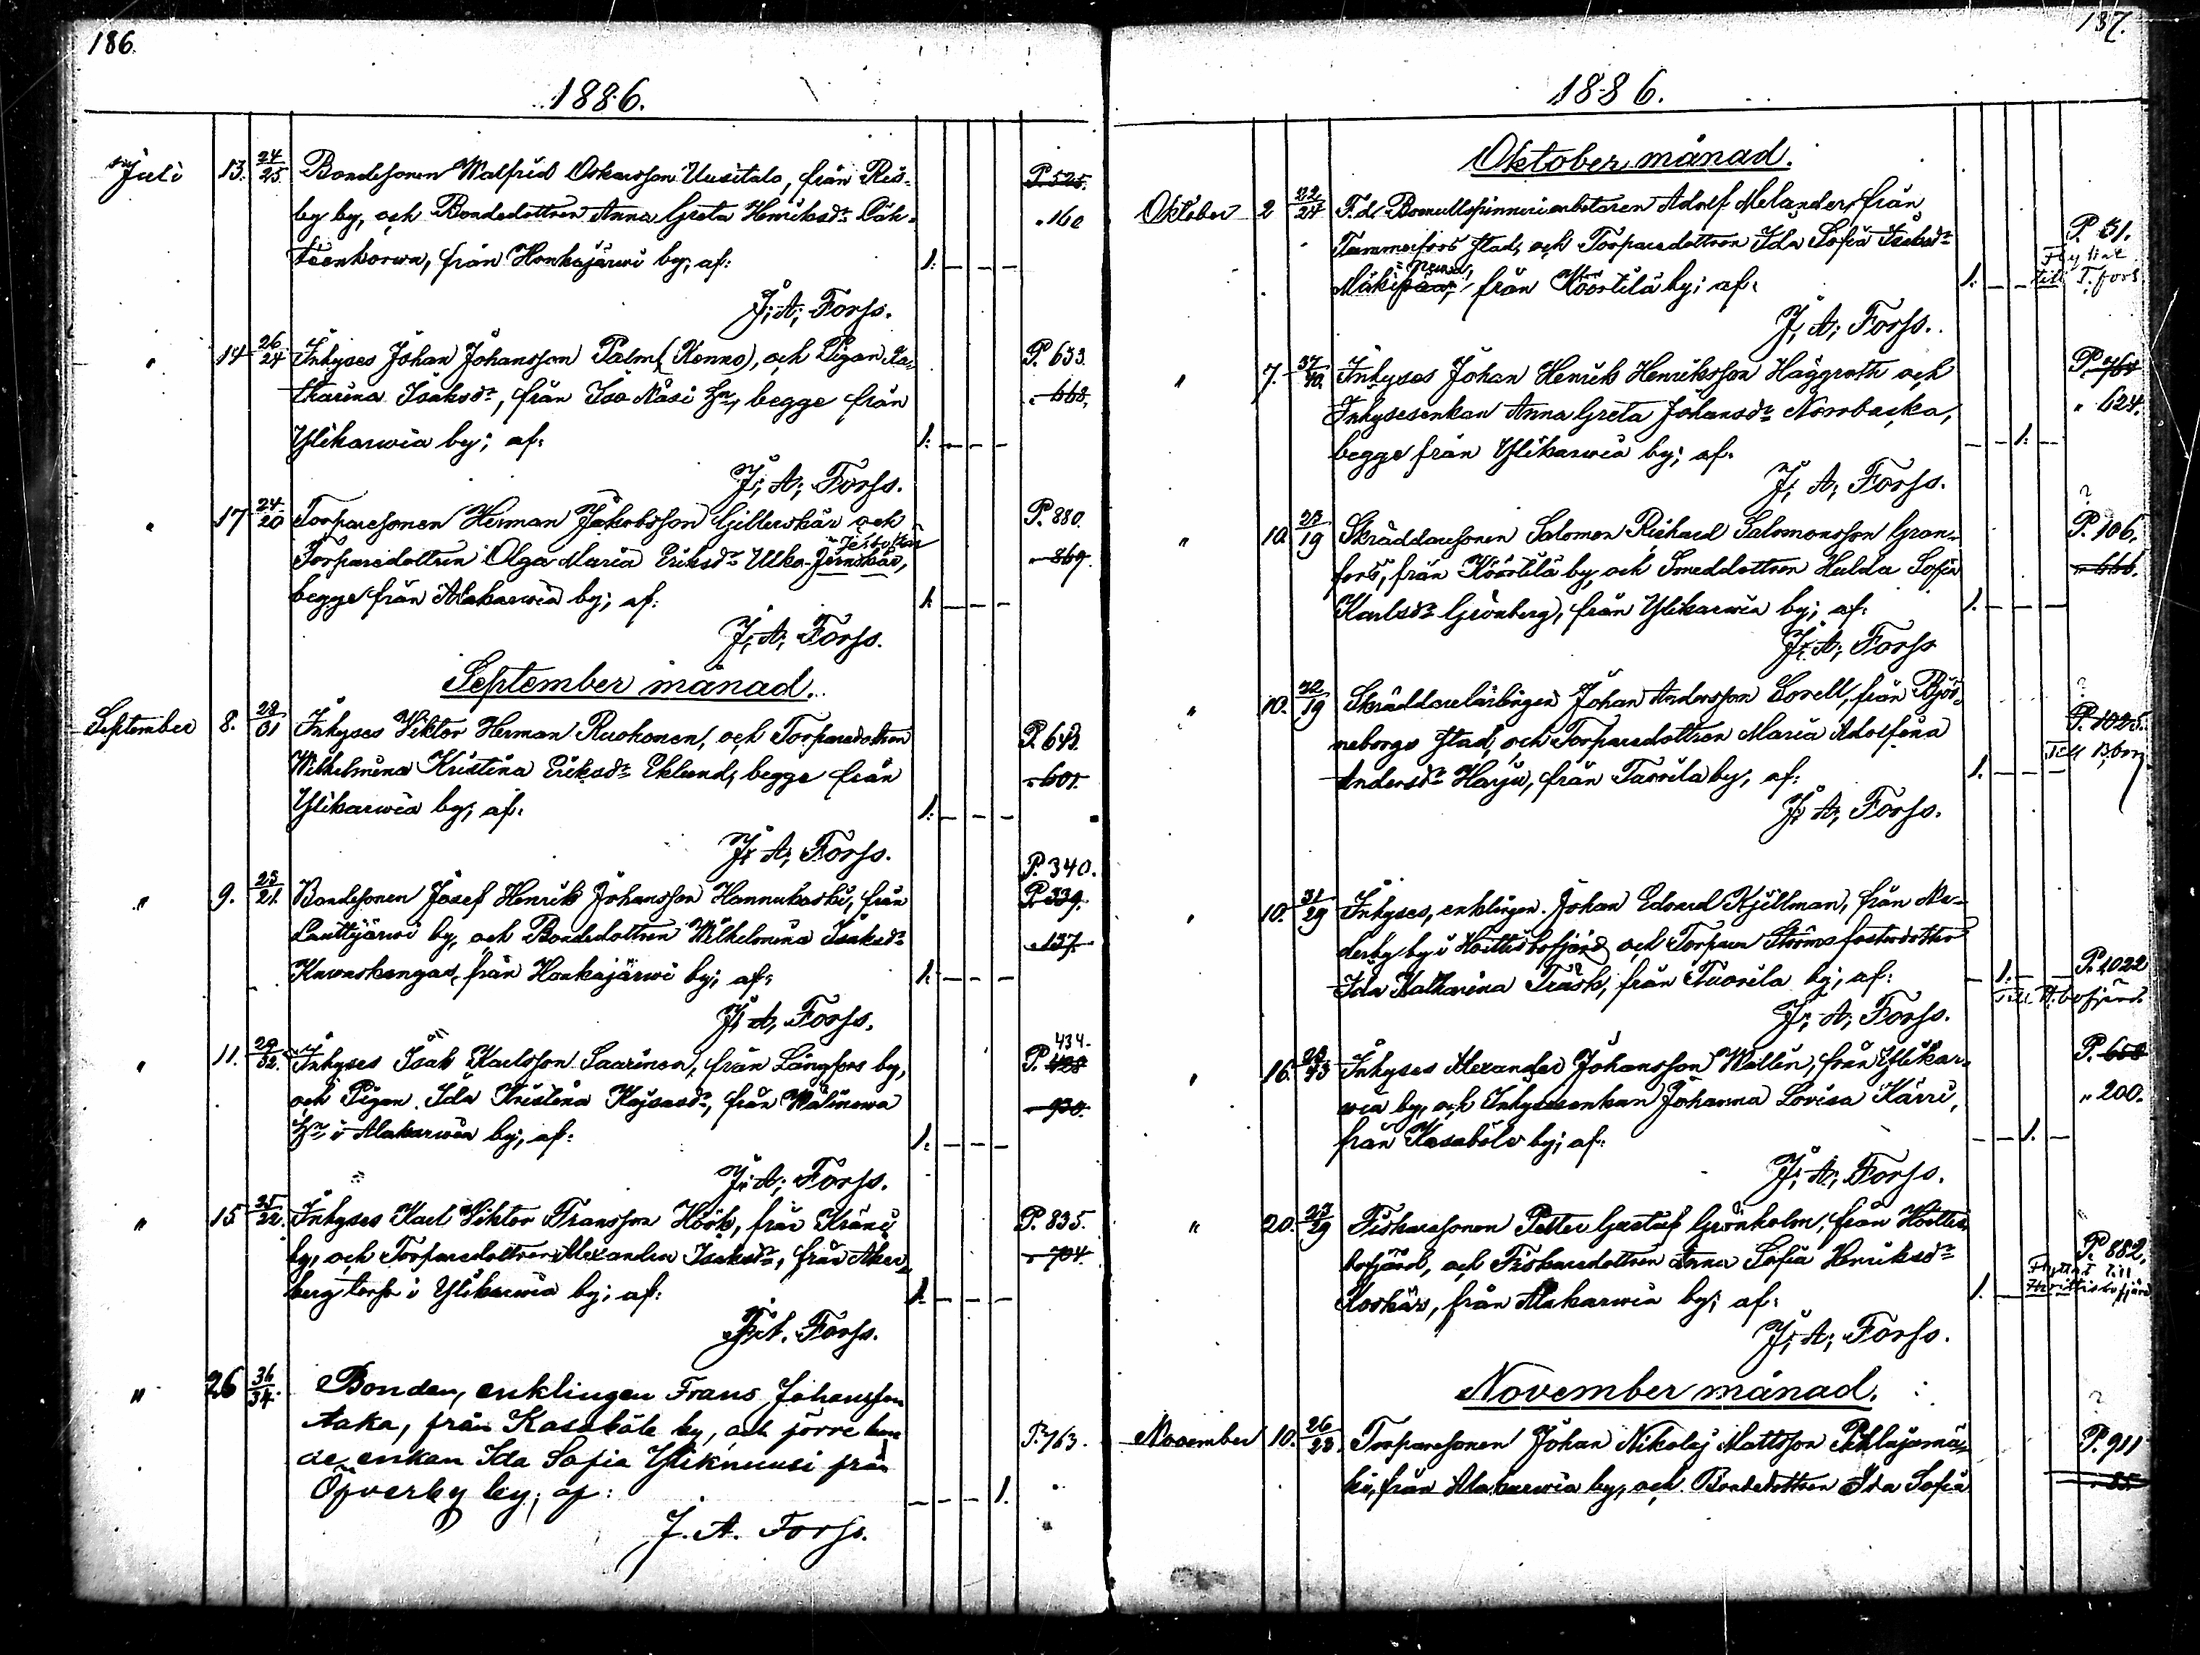 186.
1886.
Juli 13. 24/25 Bondesonen Walfrid Oskarsson Uusitalo, från Ris- P. 525.
by by, och Bondedottren Anna Greta Henriksdr Päh- " 160
keenkorwa, från Honkajärwi by; af: 1. — — —
J. A. Forss.
" 14 26/24 Inhyses Johan Johansson Palm (Kenno), och Pigan Ka- P. 633.
tharina Isaksdr, från Iso Näsi hn, begge från " 668.
Ylikarwia by; af: 1. — — —
J. A. Forss.
" 17 24/20 Torparesonen Herman Jakobsson Gillerskär och P. 880.
Torparedottren Olga Maria Eriksdr Ulko-Jernskär, " 869.
begge från Alakarwia by; af: 1. — — —
J. A. Forss.
September månad.
September 8. 28/31 Inhyses Viktor Herman Ruohonen, och Torparedottren P. 643.
Wilhelmina Kristina Eriksdr Eklund, begge från " 601.
Ylikarwia by; af: 1. — — —
J. A. Forss.
P. 340.
" 9. 25/21. Bondesonen Josef Henrik Johansson Hannukoski, från P. 339.
Lauttijärwi by, och Bondedottren Wilhelmina Isaksdr " 137.
Kuwaskangas, från Honkajärwi by; af: 1. — — —
J. A. Forss.
434.
" 11. 29/32. Inhyses Isak Karlsson Saarinen, från Långfors by, P. 428
och Pigan Ida Kristina Kajsasdr, från Wälinewa " 930.
hn i Alakarwia by; af: 1. — — —
J. A. Forss.
" 15 25/22. Inhyses Karl Viktor Fransson Höök, från Kräni P. 835.
by, och Torparedottren Alexandra Isaksdr, från Åker- " 704.
berg torp i Ylikarwia by; af: 1. — — —
J. A. Forss.
" 26 36/34. Bonden, enklingen Frans Johansson
Aaka, från Kasaböle by, och förre bon- P. 763.
de enkan Ida Sofia Yliknuusi från
Öfverby by; af: — — — 1.
J. A. Forss.
137.
1886.
Oktober månad.
Oktober 2 22/24 F.d. Bomullsspinneriarbetaren Adolf Melander, från
Tammerfors stad, och Torparedottren Ida Sofia Isaksdr P. 31.
Flyttat
Mäki från Köörtilä by; af: 1. — — till T.fors
J. A. Forss.
" 7. 37/40. Inhyses Johan Henrik Henriksson Häggroth och P. 764
Inhysesenkan Anna Greta Johansdr Norrbacka, " 624.
begge från Ylikarwia by; af: — — 1. —
J. A. Forss.
?
" 10. 25/19 Skräddaresonen Salomon Richard Salomonsson Gran- P. 106.
fors, från Köörtilä by och Smeddottren Hulda Sofia " 666.
Karlsdr Grönberg, från Ylikarwia by; af: 1. — — —
J. A. Forss
?
" 10. 32/19 Skräddarelärlingen Johan Andersson Lorell, från Björ- P. 1025.
neborgs stad, och Torparedottren Maria Adolfina Till B.borg
Andersdr Harju, från Tuorila by; af: 1. — — —
J. A. Forss.
" 10. 31/29 Inhyses, enklingen Johan Edvard Kjellman, från Me-
derby by i Hvittisbofjärd och Torparen Ströms fosterdotter
Ida Katharina Träsk, från Tuorila by; af: — 1. — — P. 1022
Till H.bofjärd.
J. A. Forss.
" 16. 28/43 Inhyses Alexander Johansson Wallin, från Ylikar- P. 658
wia by, och Inhysesenkan Johanna Lovisa Kärri, " 200.
från Kasaböle by; af: — — 1. —
J. A. Forss.
" 20. 23/29 Fiskaresonen Petter Gustaf Grönholm, från Hvittis-
bofjärd, och Fiskaredottren Anna Sofia Henriksdr P. 882.
Flyttat till
Loskär, från Alakarwia by; af: 1. — Hvittisbofjärd
J. A. Forss.
November månad.
?
November 10. 26/23. Torparesonen Johan Nikolaj Mattsson Pihlajamä- P. 911
ki, från Alakarwia by, och Bondedottren Ida Sofia " 85.